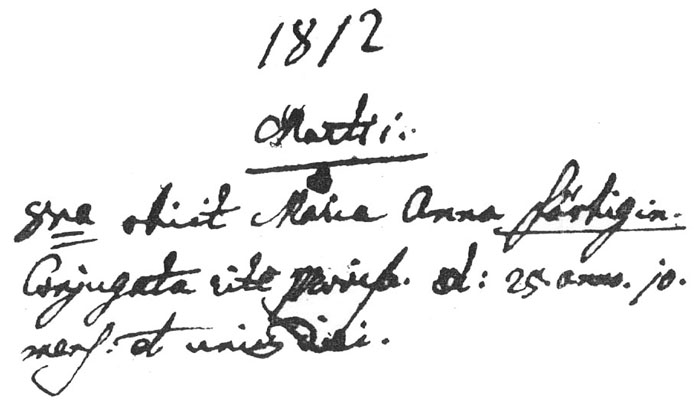 1812
Martii.
8va obiit Maria Anna Färbigin.
Conjugata rite provisa. æt: 25 anno. 10.
mens. et unius diei.